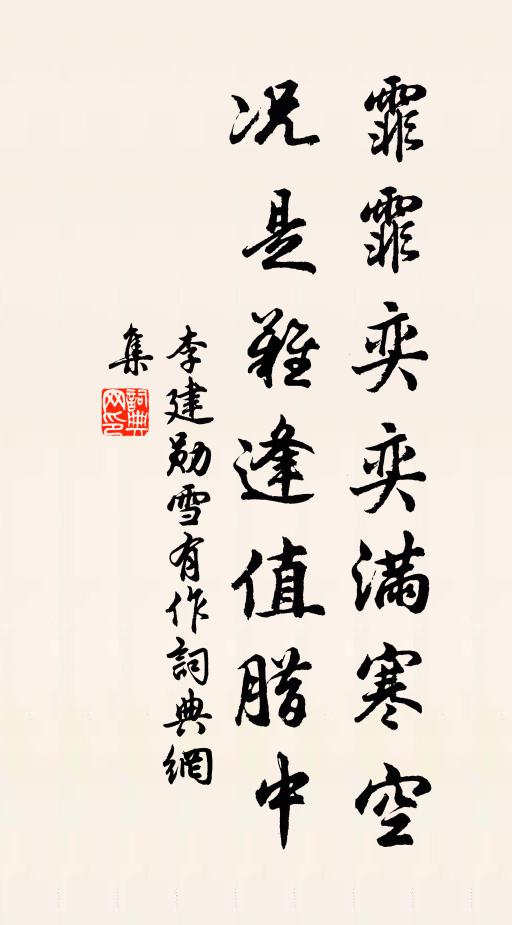 霏霏奕奕滿寒空
况是難逢值腊中
李建勋雪有作詞典網
集
詞典
网印